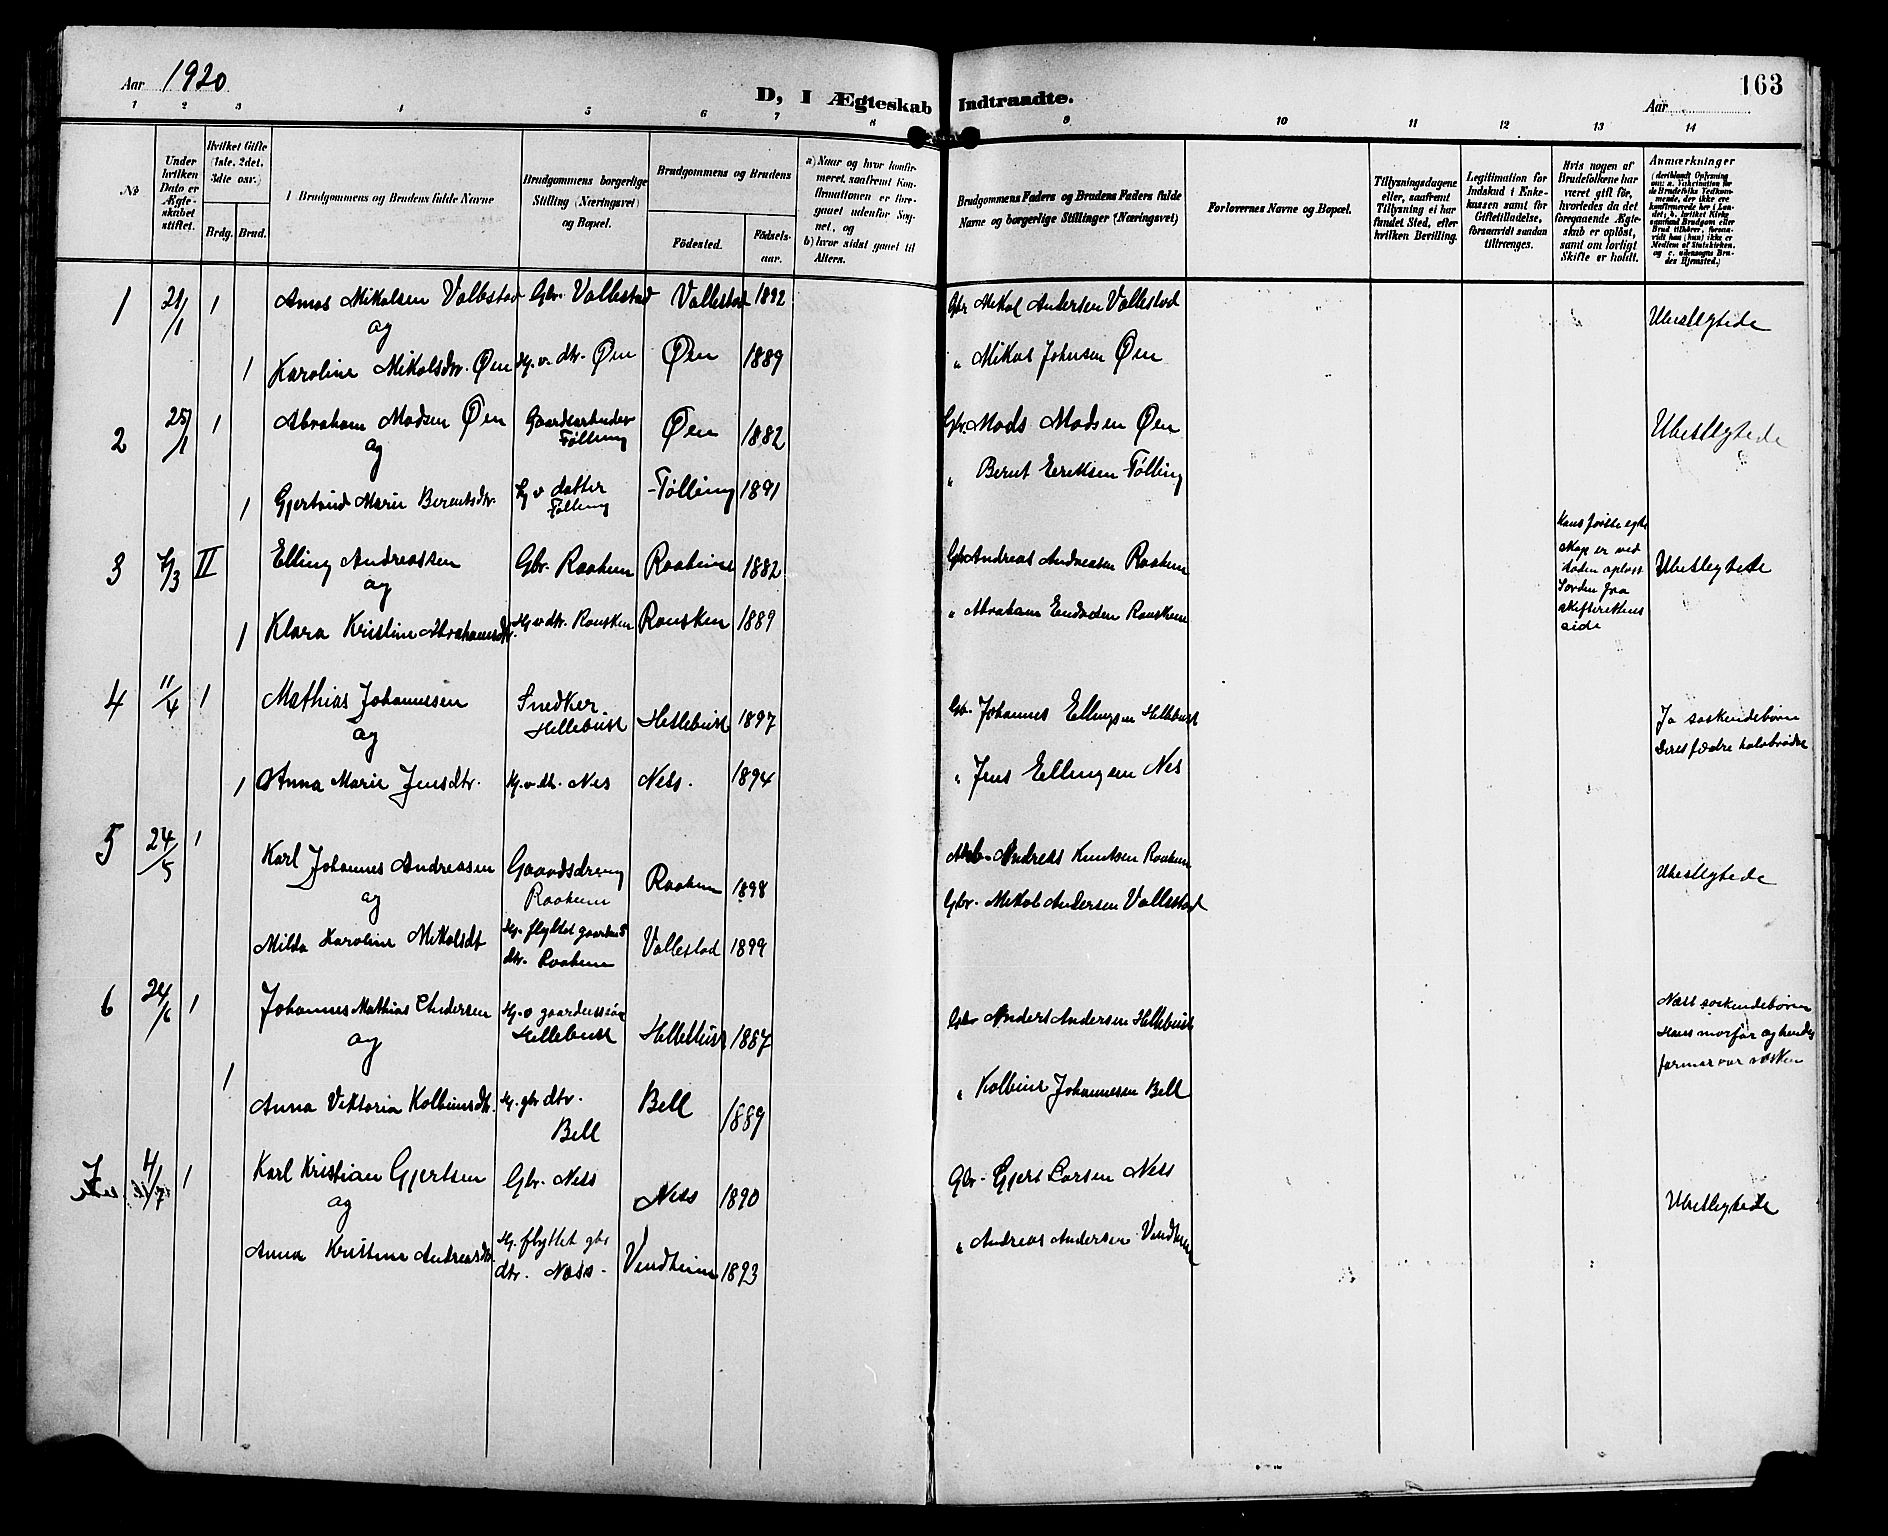 Aar 1920
163
D, I Ægteskab Indtraadte.
Aar
1 2 3 4 5 6 7 8 9 10 11 12 13 14
No
Under hvilken Dato er Ægteskabet stiftet.
Hvilket Gifte (1ste, 2det, 3dte osv.)
Brdg. Brud.
Brudgommens og Brudens fulde Navne
Brudgommens borgerlige Stilling (Næringsvei) og Bopæl.
Brudgommens og Brudens
Födested.
Födselsaar.
a) Naar og hvor konfirmeret, saafremt Konfirmationen er foregaaet udenfor Sognet, og
b) hvor sidst gaaet til Alters.
Brudgommens Faders og Brudens Faders fulde Navne og borgerlige Stillinger (Næringsvei)
Forlovernes Navne og Bopæl.
Tillysningsdagene eller, saafremt Tillysning ei har fundet Sted, efter hvilken Bevilling.
Legitimation for Indskud i Enkekassen samt for Giftetilladelse, forsaavidt saadan tiltrænges.
Hvis nogen af Brudefolkene har været gift för, hvorledes da det foregaaende Ægteskab er oplöst, samt om lovligt Skifte er holdt.
Anmærkninger
1 21/1 1 Amos Mikalsen Vallestad Gbr. Vallestad Vallestad 1892 Gbr Mikal Andersen Vallestad Ubeslegtede
og
1 Karoline Mikalsdtr. Øen Hj.v. dtr. Øen Øen 1889 " Mikal Johnsen Øen
2 25/1 1 Abraham Madsen Øen Gaardsarbeider Følling Øen 1882 Gbr. Mads Madsen Øen Ubeslegtede
og
1 Gjertrud Marie Berentsdtr. Hj v datter Følling Følling 1891 " Bernt Eeriksen Følling
3 4/3 II Elling Andreassen Gbr. Raaheim Raaheim 1882 Gbr Andreas Andreassen Raaheim Ubeslegtede
Hans første egte
skap er ved
døden opløst
fra
skifterettens
side
og
1 Klara Kristine Abrahamsdtr. Hj v dtr. 1889 " Abraham
4 11/4 1 Mathias Johannesen Snedker Hellebust Hellebust 1897 Gbr. Johannes Ellingsen Hellebust Ja søskendebørn
Deres fædre halvbrødre
og
1 Anna Marie Jensdtr. Hj.v. dtr. Nes Ness. 1894 " Jens Ellingsen Nes
5 24/5 1 Karl Johannes Andreasen Gaardsdreng Raaheim Raaheim 1898 Andreas Knutsen Raaheim Ubeslegtede
og
Milda Karoline Mikalsdt Hj. flyttet
dtr. Raaheim Vallestad 1899 Gbr. Mikal Andersen Vallestad
6 24/6 1 Johannes Mathias Andersen Hj. v
Hellebust Hellebust 1887 Gbr Anders Andersen Hellebust Næst søskendebørn
Hans morfar og hendes
farmor var søsken
og
1 Anna Viktoria Kolbeinsdtr. Hj. gbr dtr. Bell Bell 1889 " Kolbein Johannesen Bell
7 4/7 1 Karl Kristian Gjertsen Gbr. Ness Ness 1890 Gbr. Gjert Larsen Ness Ubeslegtede
og
Anna Kristine Andreasdtr. Hj. flyttet gbr
dtr. Ness. Vindheim 1893 " Andreas Andersen Vindheim